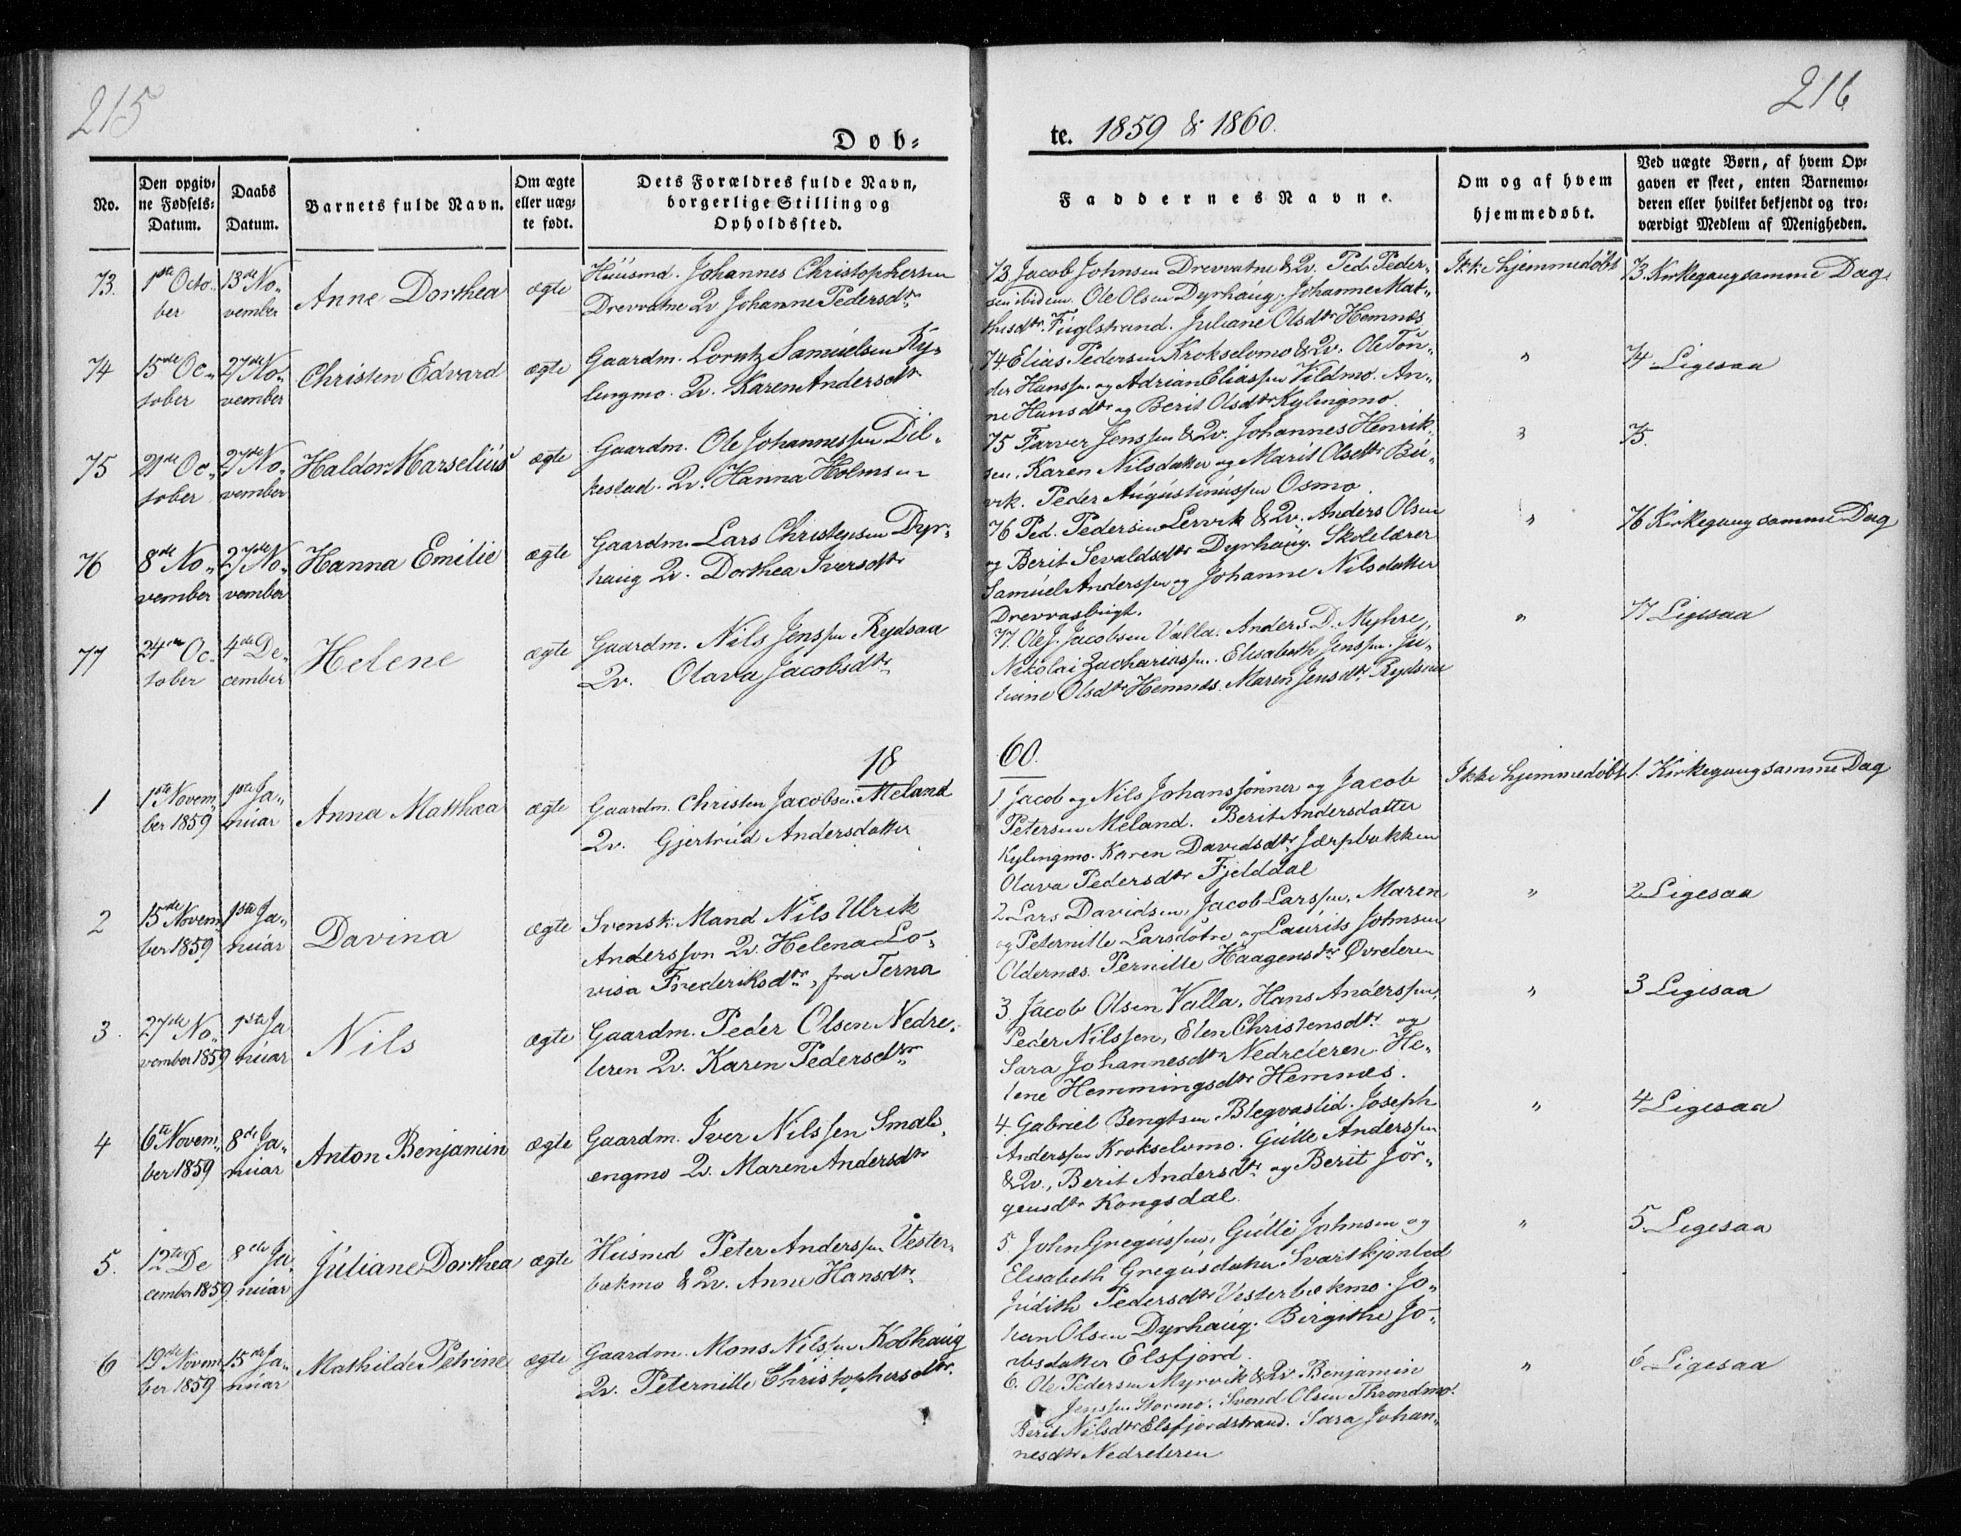 215
216
Døb-
te. 1859 & 1860.
No.
Den opgiv-
ne Fødsels-
Datum.
Daabs
Datum.
Barnets fulde Navn.
Om ægte
eller uæg-
te født.
Dets Forældres fulde Navn,
borgerlige Stilling og
Opholdssted.
Faddernes Navne.
Om og af hvem
hjemmedøbt.
Ved uægte Børn, af hvem Op-
gaven er skeet, enten Barnemo-
deren eller hvilket bekjendt og tro-
værdigt Medlem af Menigheden.
73. 1ste Octo- 13de No- Anne Dorthea ægte Huusmd. Johannes Christophersen
ber vember Drevvatne Qv Johanne Pedersdtr
73 Jacob Johnsen Drevvatne & Qv. Ped. Peder-
sen ibidem. Ole Olsen Dyrhaug. Johanne Mat-
thisdtr. Fuglstrand. Juliane Olsdtr Hemnæs
Ikke hjemmedøbt 73. Kirkegang samme Dag.
74 15de Oc- 27de No- Christen Edvard ægte Gaardm. Lorntz Samuelsen Ky-
tober vember lingmo. Qv. Karen Andersdtr
74 Elias Pedersen Krokselvmo & Qv. Ole Tøn-
der Hanssen og Adrian Eliassen Vildmo. An-
ne Hansdtr og Berit Olsdtr Kylingmo.
" 74 Ligesaa
75 21de Oc- 27de No- Haldor Marselius ægte Gaardm. Ole Johannessen Dil-
tober vember kestad. Qv. Hanna Holmsen
75 Farver Jenssen & Qv. Johannes Henrik-
sen. Karen Nilsdatter og Marit Olsdtr Bu-
vik. Peder Augustinussen Osmo.
" 75.
76 8de No- 27de No- Hanna Emilie ægte Gaardm. Lars Christensen Dyr-
vember vember haug Qv. Dorthea Iversdtr
76 Ped. Pedersen Lervik & Qv. Anders Olsen
og Berit Sevaldsdtr Dyrhaug. Skolelærer
Samuel Anderssen og Johanne Nilsdatter
Drevvasbugt.
" 76 Kirkegang samme Dag
77 24de Oc- 4de De- Helene ægte Gaardm. Nils Jenssen Rydsaa
tober cember Qv. Olava Jacobsdtr
77. Ole J. Jacobsen Valla. Anders D. Myhre,
Nikolai Zachariassen. Elisabeth Jenssen. Ju-
liane Olsdtr Hemnæs. Maren Jensdtr Rydsaa
" 77 Ligesaa
18 60.
1 1ste Novem- 1ste Ja- Anna Matthea ægte Gaardm. Christen Jacobsen Meland
ber 1859 nuar Qv. Gjertrud Andersdatter
1 Jacob og Nils Johanssønner og Jacob
Petersen Meland. Berit Andersdatter
Kylingmo. Karen Davidsdtr Jærpbakken
Olava Pedersdtr Fjelddal
Ikke hjemmedøbt 1. Kirkegang samme Dag
2 15de Novem 1ste Ja- Davina ægte Svensk Mand Nils Ulrik
ber 1859 nuar Anderssson Qv. Helena Lo-
visa Frederiksdtr, fra Terna
2 Lars Davidsen, Jacob Larssen, Maren
og Peternille Larsdøtre og Laurits Johnsen
Oldernæs. Pernille Haagensdtr Øvreleren
" 2 Ligesaa
3. 27de No- 1ste Ja Nils ægte Gaardm. Peder Olsen Nedre-
vember 1859 nuar leren Qv. Karen Pedersdtr
3. Jacob Olsen Valla, Hans Anderssen,
Peder Nilssen, Elen Christensdtr og
Sara Johannesdtr Nedreleren. He-
lene Hemmingsdtr Hemnæs.
" 3 Ligesaa
4 6te Novem- 8de Ja- Anton Benjamin ægte Gaardm. Iver Nilssen Smale-
ber 1859 nuar engmo Qv. Maren Andersdtr
4. Gabriel Bengtsen Blegvaslid. Joseph
Anderssen Krokselvmo. Gutte Anderssen
& Qv., Berit Andersdtr og Berit Jør-
gensdtr Kongsdal.
" 4 Ligesaa
5. 12te De 8de Ja- Juliane Dorthea ægte Husmd Peter Anderssen Vester-
cember 1859. nuar bækmo & Qv. Anne Hansdtr
5. John Gregussen, Gutte Johnsen og
Elisabeth Gregusdatter Svartkjønlid
Judith Pedersdtr Vesterbækmo. Jo-
han Olsen Dyrhaug. Birgithe Jo-
Elsfjord.
" 5. Ligesaa
6 19de Novem 15de Ja- Mathilde Petrine ægte Gaardm. Mons Nilssen Kobhaug
ber 1859 nuar Qv. Peternille Christophersdtr.
6. Ole Pedersen Myrvik & Qv. Benjamin
Jenssen Stormo. Svend Olsen Throndmo.
Berit Nilsdtr Elsfjordstrand. Sara Johan-
nesdtr Nedreleren
" 6 Ligesaa